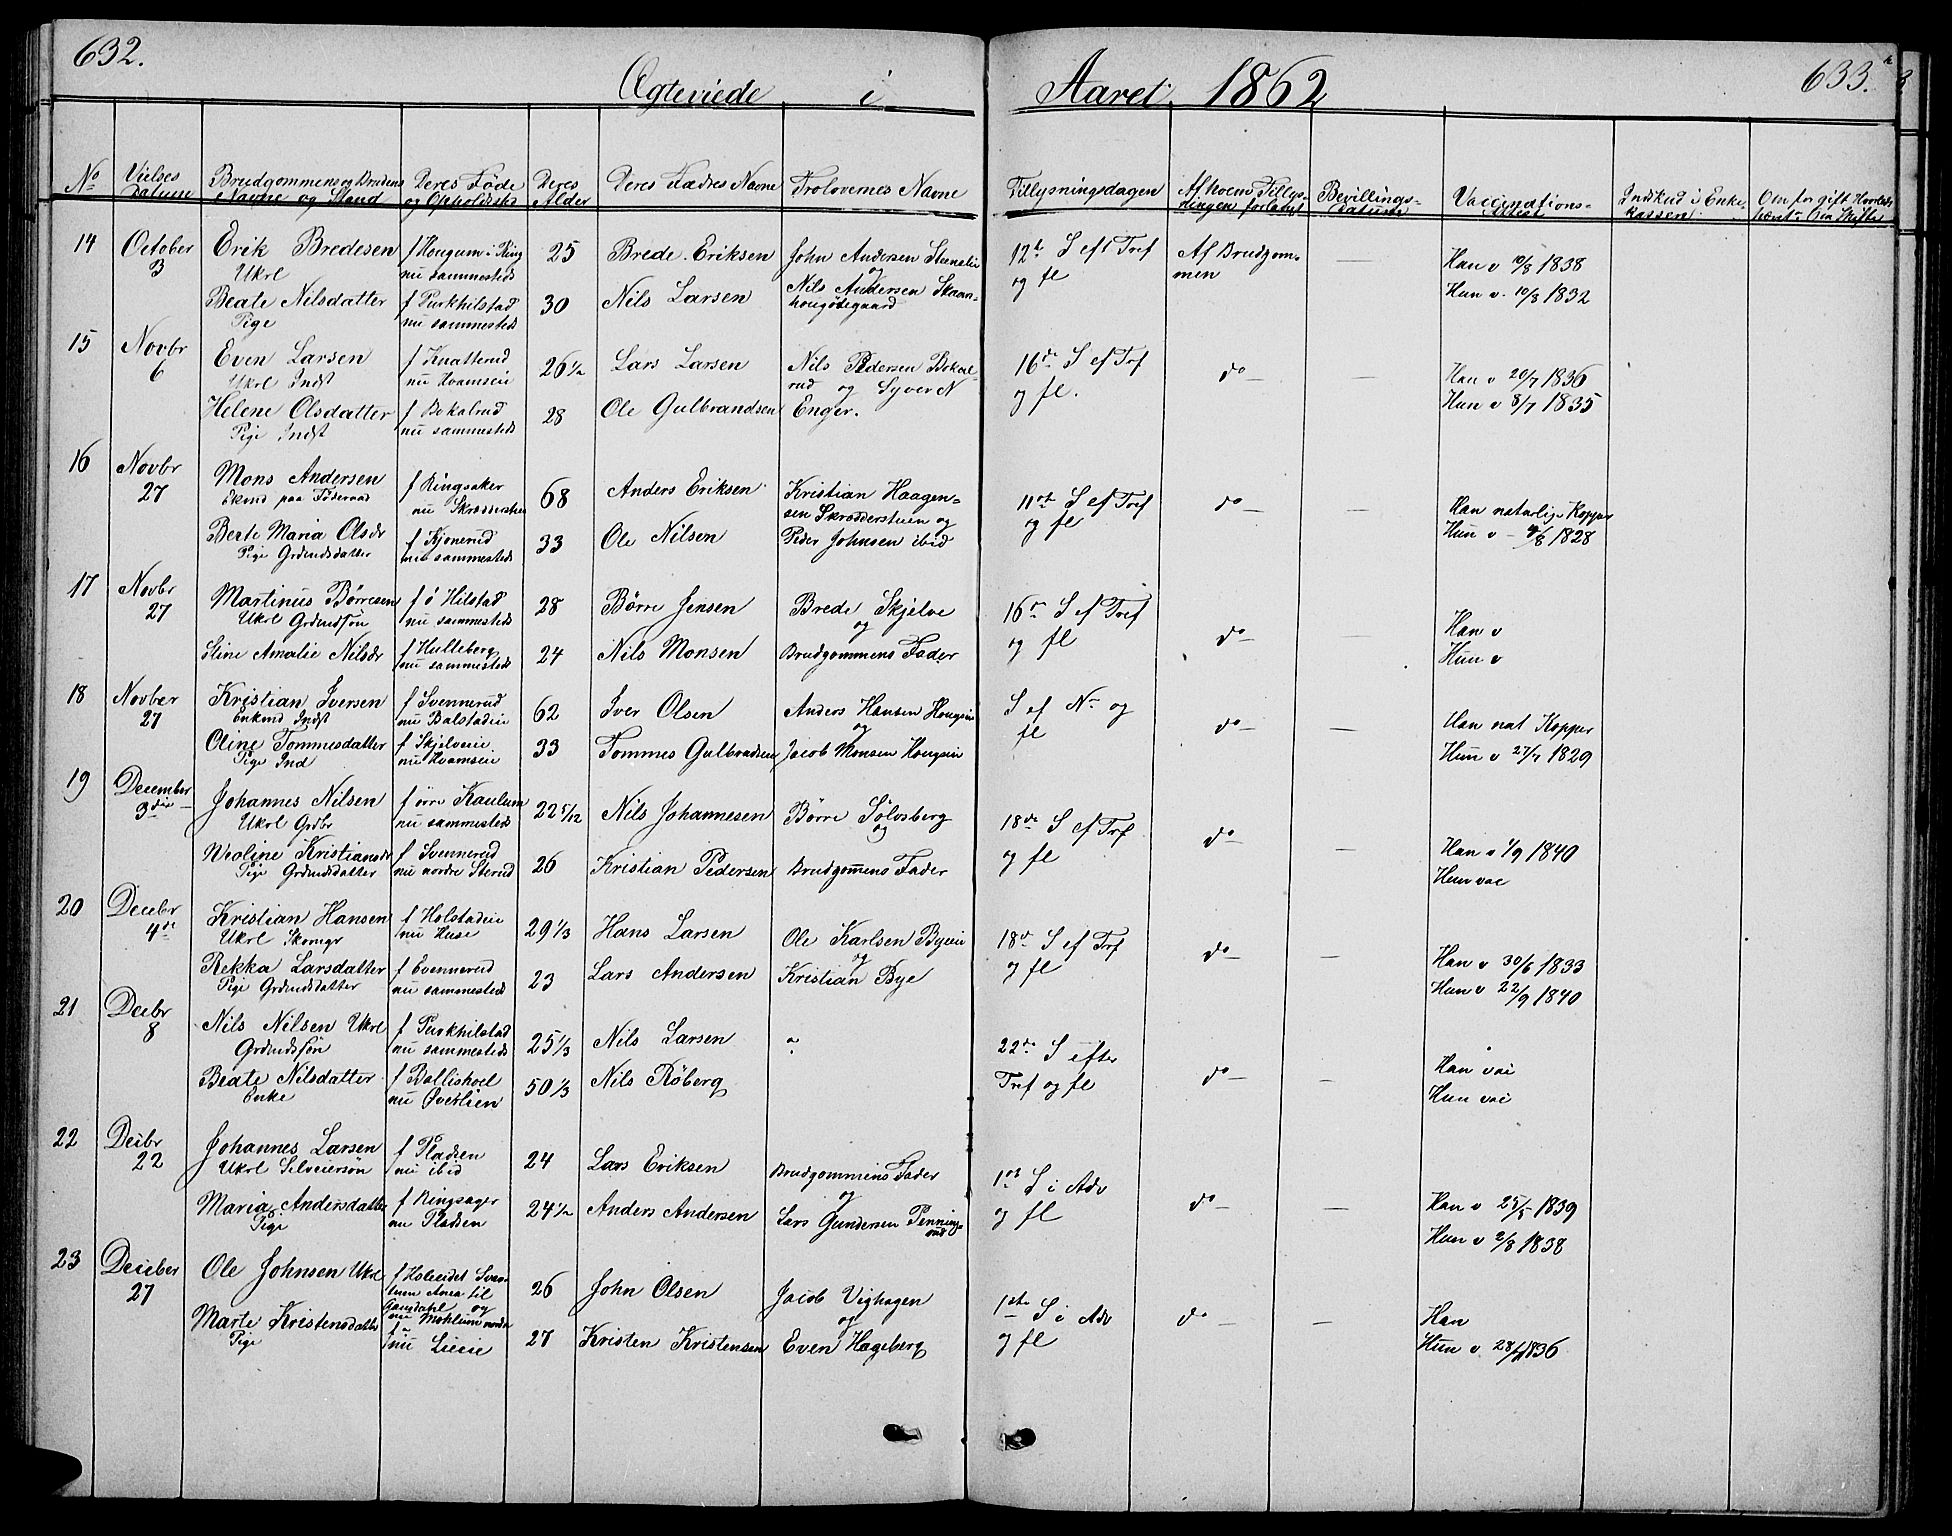 632.
Ægteviede i Aaret 1862
633.
No
Vielses Datum
Brudgommens og Brudens Navne og Stand
Deres Føde og Opholdsstd
Deres Alder
Deres Fædres Navne
Trolovernes Navne
Tillysningsdagen
Af hvem Tillysningen forlangt
Bevillings-Datum
Vaccinations-Attest
Indskud i Enkekassen
Om for gift
14
October 3
Erik Bredesen
Ukrl
f Hougum i Ring
nu sammesteds
25
Brede Eriksen
John Andersen
og
12te S eft Tref
og fl
Af Brudgommen
—
Han v 10/8 1838
Beate Nilsdatter
Pige
f Purkhilstad
nu sammesteds
30
Nils Larsen
Nils Andersen
Hun v. 10/8 1832
15
Novbr 6
Even Larsen
Ukrl Indst
f Knatterud
nu Hvamseie
26 1/2
Lars Larsen
Nils Pedersen Bokalrud og Syver N
16de S ef Trf
og fl.
do —
—
Han v 20/7 1836
Helene Olsdatter
Pige Indst
f Bokalrud
nu sammesteds
28
Ole Gulbrandsen
Enger.
Hun v 8/7 1835
16
Novbr 27
Mons Andersen
Ekmd paa Føderaad
f Ringsaker
nu Skrædderstuen
68
Anders Eriksen
Kristian Haagensen Skrædderstuen og
11te S ef Tref
og fl
do —
—
Han naturlige Kopper
Beate Maria Olsdr
Pige Grdmdsdatter
f Kjonerud
nu sammesteds
33
Ole Nilsen
Peder Johnsen ibid
Hun v 9/8 1828
17
Novbr 27
Martinus Børresen
Ukrl Grdmdssøn
f ø Hilstad
nu sammesteds
28
Børre Jensen
Brede Skjelve
og
16de S ef Tref
og fl
do —
—
Han v
Stine Amalie Nilsdr
f Hulleberg
nu sammesteds
24
Nils Monsen
Brudgommens Fader
Hun v
18
Novber 27
Kristian Iversen
Enkmd Indst
f Svennerud
nu Balstadeie
62
Iver Olsen
Anders Hansen Hougseie
og
S ef Nr og
fl
do —
—
Han nat Kopper
Oline Tommesdatter
Pige Ind
f Skjelveie
nu Hvamseie
33
Tommes Gulbrandsen
Jacob Monsen Hougseie
Hun v 27/7 1829
19
December 3die
Johannes Nilsen
Ukrl Grdbr
f øvre Kaulum
nu sammesteds
22 5/12
Nils Johannesen
Børre Sølvsberg
og
18de S ef Trf
og fl
do —
—
Han v 4/9 1840
Nicoline Kristiansdr
Pige Grdmdsdatter
f Svennerud
nu nordre Sterud
26
Kristian Pedersen
Brudgommens Fader
Hun vac
20
Decebr 4de
Kristian Hansen
Ukrl Skomgr
f Holstadeie
nu Huse
29 1/3
Hans Larsen
Ole Karlsen Byeeie
og
18de S ef Trf
og fl
do —
—
Han v 30/6 1833
Rekka Larsdatter
Pige Grdmdsdatter
f Evennerud
nu sammesteds
23
Lars Andersen
Kristian Bye
Hun v 22/9 1840
21
Decbr 8
Nils Nilsen Ukrl
Grdmdssøn
f Purkhilstad
nu sammesteds
25 1/3
Nils Larsen
22de S efter
Tref og fl
do —
—
Han vac
Beate Nilsdatter
Enke
f Ballishoel
nu Øverlien
50 1/3
Nils Røberg
Hun vac
22
Decbr 22
Johannes Larsen
Ukrl Selveiersøn
f Pladsen
nu ibid
24
Lars Eriksen
Brudgommens Fader
og
1ste S i Adv
og fl
do —
—
Han v 25/5 1839
Maria Andersdatter
Pige
f Ringsager
nu Pladsen
24 1/2
Anders Andersen
Lars Gundersen Penningsrud
Hun v 2/8 1838
23
December 27
Ole Johnsen Ukrl
26
John Olsen
Jacob Vighagen
og
1ste S i Adv
og fl
do —
—
Han
Marte Kristensdatter
Pige
nu Lieeie
27
Kristen Kristensen
Even Hageberg
Hun v. 28/ 1836